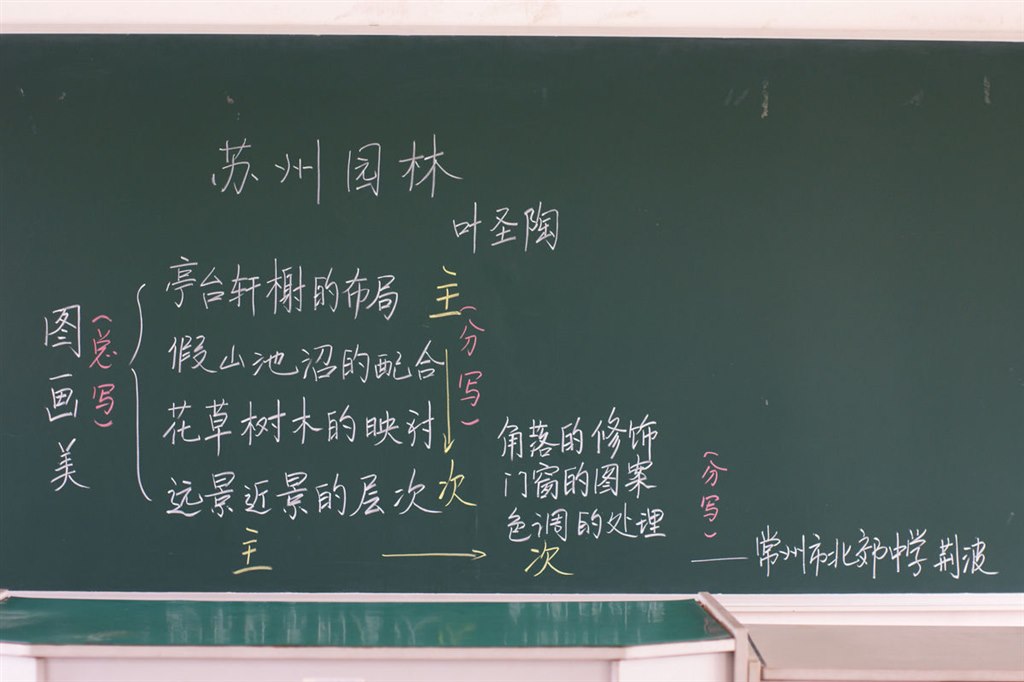 苏州园林
叶圣陶
图画美
(总写)
亭台轩榭的布局
假山池沼的配合
花草树木的映衬
远景近景的层次
主
次
(分写)
角落的修饰
门窗的图案
色调的处理
(分写)
主
次
——常州市北郊中学荆波